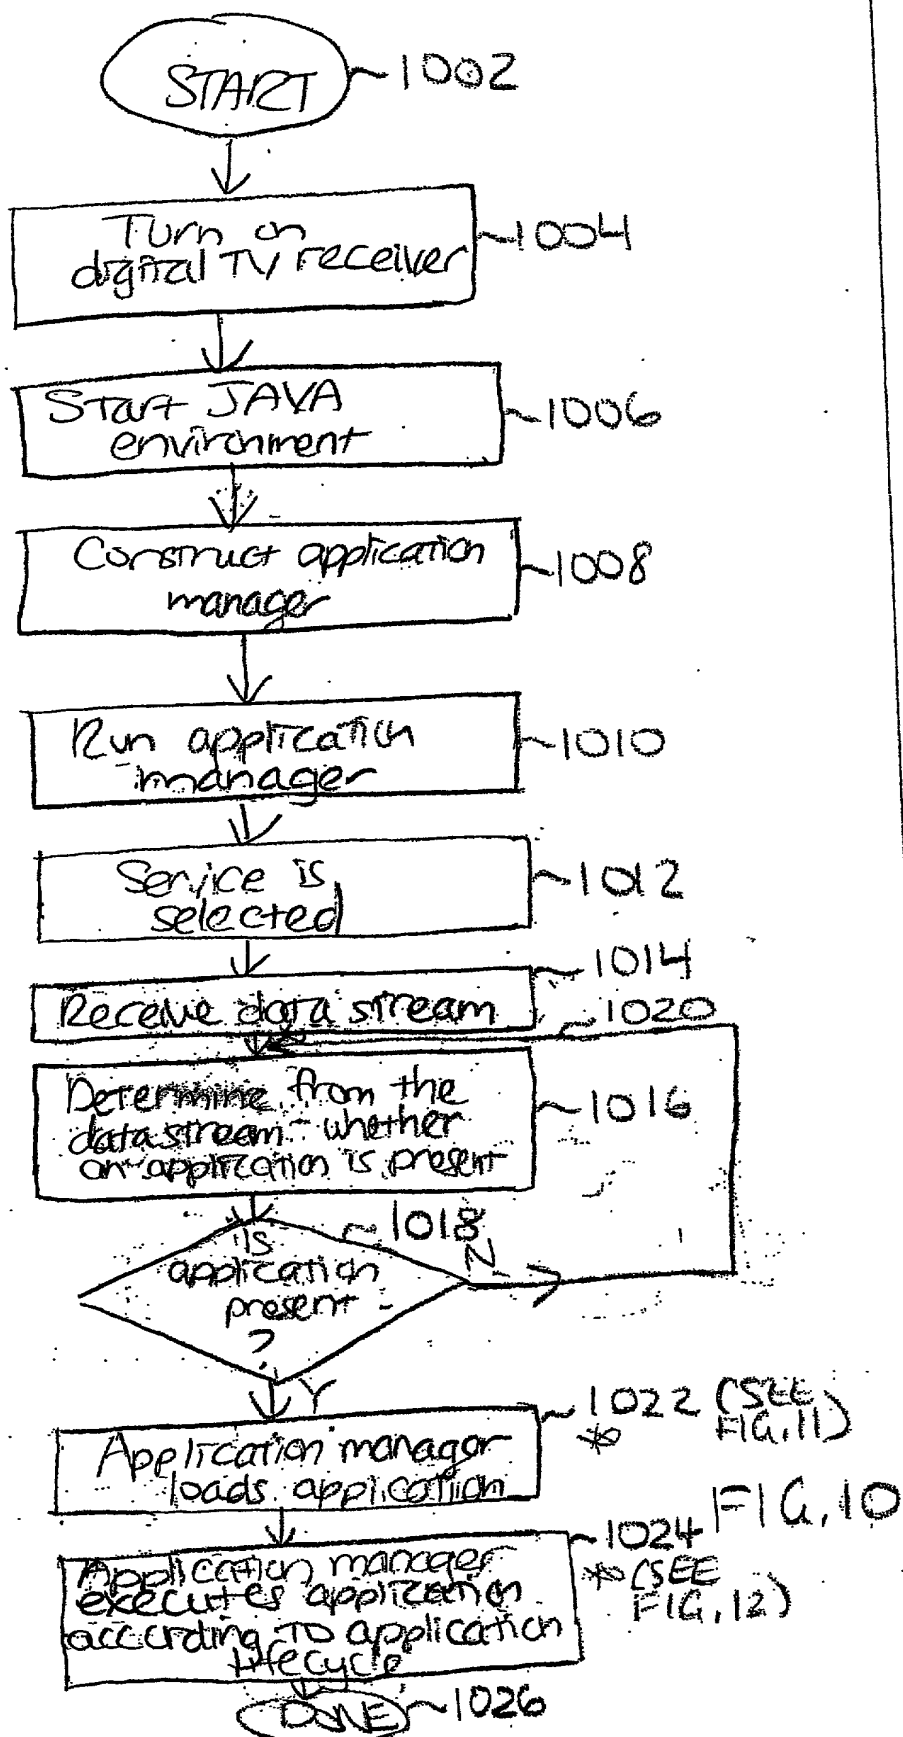 START
1002
Turn on
digital TV receiver
1004
Start JAVA
environment
1006
Construct application
manager
1008
Run application
manager
1010
Service is
selected
1012
1014
Receive data stream
1020
Determine from the
data stream whether
an application is present
1016
1018
Is
application
present
?
N
Y
Application manager
loads application
1022 (SEE
* FIG. 11)
FIG. 10
Application manager
executes application
according to application
lifecycle
1024
* (SEE
FIG. 12)
DONE
1026